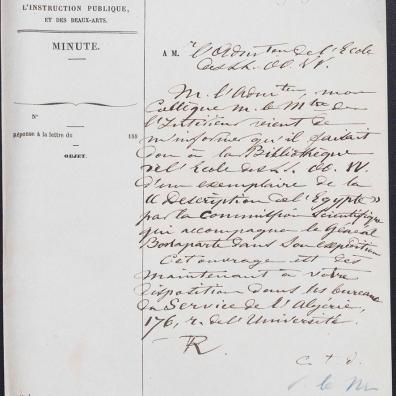 L'INSTRUCTION PUBLIQUE,
ET DES BEAUX-ARTS.
MINUTE.
N°
Réponse à la lettre du 188
OBJET.
A M. l'Admteur de l'Ecole
des LL. OO. VV.
M. l'Admteur, mon
Collègue M. le Mtre de
l'Intérieur vient de
m'informer qu'il faisait
don à la Bibliothèque
de l'Ecole des LL. OO. VV.
d'un exemplaire de la
« Description de l'Egypte »
par la Commission Scientifique
qui accompagna le Général
Bonaparte dans son expédition
Cet ouvrage est dès
maintenant à votre
disposition dans les bureaux
du Service de l'Algérie,
176, r. de l'Université.
R
c. t. d.
le M